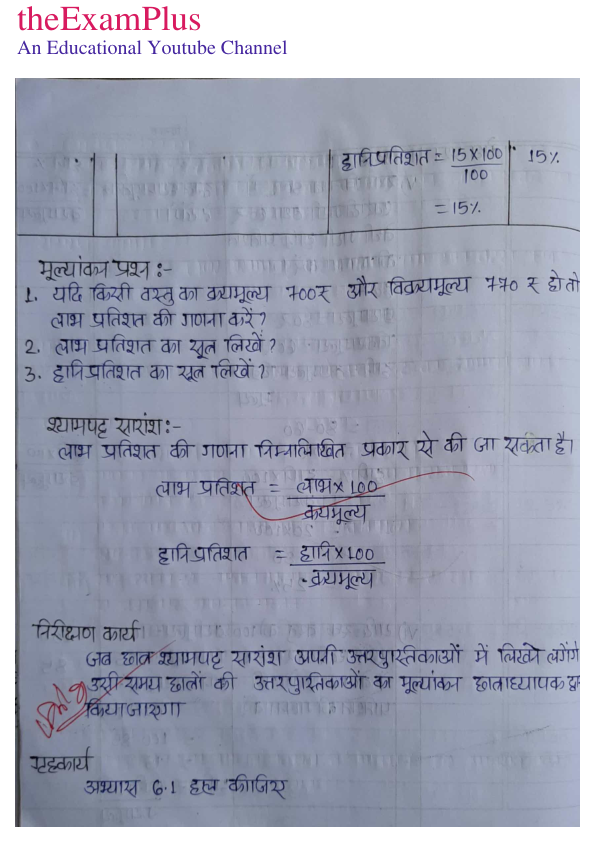 theExamPlus
An Educational Youtube Channel
हानिप्रतिशत = 15 X 100 15%
100
= 15%
मूल्यांकन प्रश्न :-
1. यदि किसी वस्तु का क्रयमूल्य 700₹ और विक्रयमूल्य 770 ₹ हो तो
लाभ प्रतिशत की गणना करें?
2. लाभ प्रतिशत का सूत्र लिखें?
3. हानिप्रतिशत का सूत्र लिखें?
श्यामपट्ट सारांश :-
लाभ प्रतिशत की गणना निम्नलिखित प्रकार से की जा सकता है।
लाभ प्रतिशत = लाभ x 100
क्रयमूल्य
हानिप्रतिशत = हानि x 100
क्रयमूल्य
निरीक्षण कार्य।
जब छात्र श्यामपट्ट सारांश अपनी उत्तरपुस्तिकाओं में लिखने लगेंगे
उसी समय छात्रों की उत्तरपुस्तिकाओं का मूल्यांकन छात्राध्यापक
किया जाएगा
गृहकार्य
अभ्यास 6.1 हल कीजिए